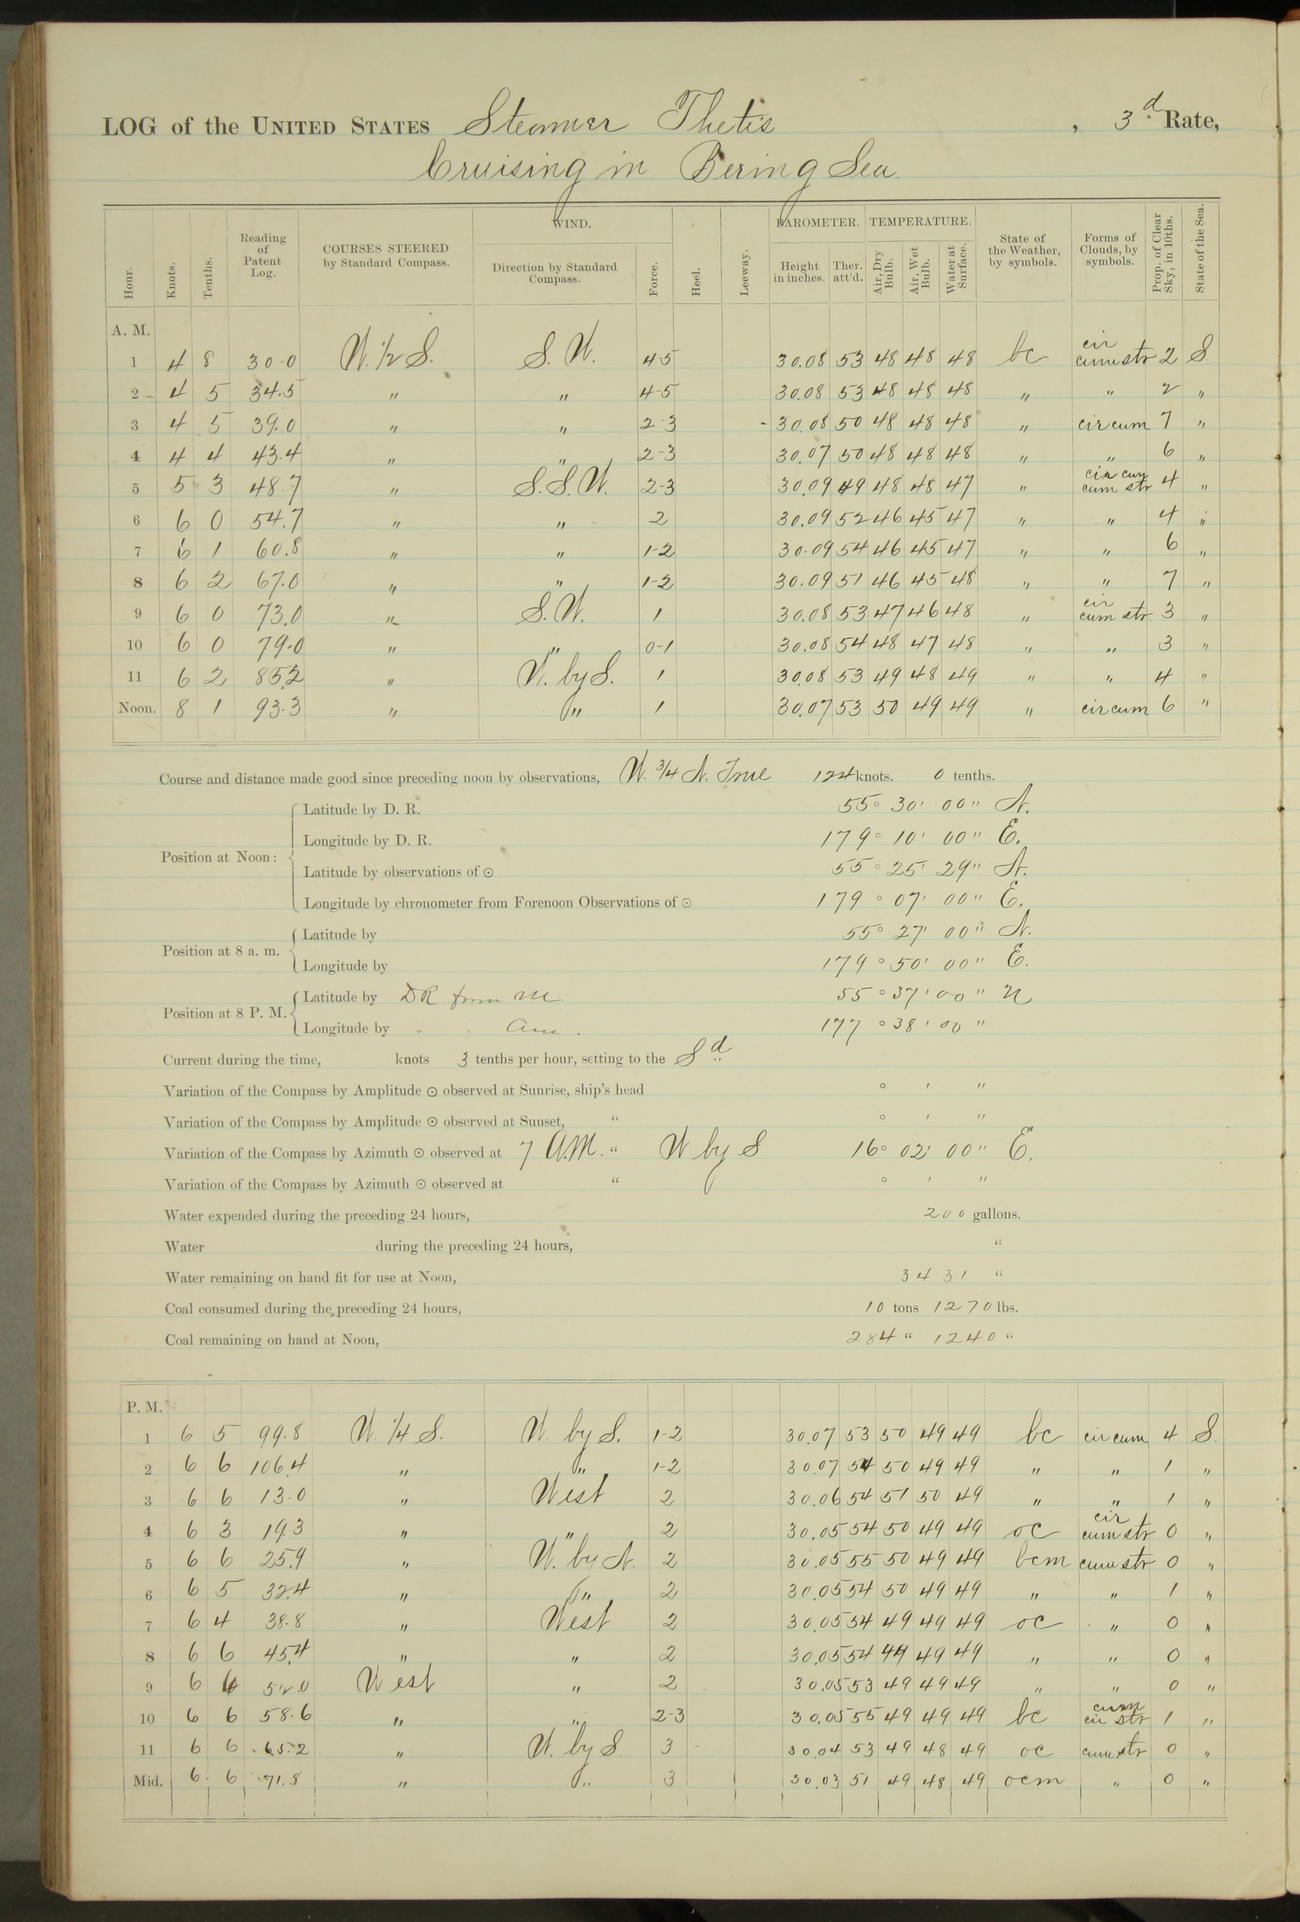 LOG of the UNITED STATES Steamer Thetis , 3d Rate,
Cruising in Bering Sea.
Hour. Knots. Tenths. Reading of Patent Log. COURSES STEERED by Standard Compass. WIND. Direction by Standard Compass. Force. Heel. Leeway. BAROMETER. Height in inches. Ther. att'd. TEMPERATURE. Air, Dry Bulb. Air, Wet Bulb. Water at Surface. State of the Weather, by symbols. Forms of Clouds, by symbols. Prop. of Clear Sky, in 10ths. State of the Sea.
A. M.
1 4 8 30.0 W. 1/2 S. S. W. 4-5 30.08 53 48 48 48 bc cir cum str 2 S
2 4 5 34.5 " " 4-5 30.08 53 48 48 48 " " 2 "
3 4 5 39.0 " " 2-3 30.08 50 48 48 48 " cir cum 7 "
4 4 4 43.4 " " 2-3 30.07 50 48 48 48 " " 6 "
5 5 3 48.7 " S.S.W. 2-3 30.09 49 48 48 47 " cir cum cum str 4 "
6 6 0 54.7 " " 2 30.09 52 46 45 47 " " 4 "
7 6 1 60.8 " " 1-2 30.09 54 46 45 47 " " 6 "
8 6 2 67.0 " " 1-2 30.09 51 46 45 48 " " 7 "
9 6 0 73.0 " S.W. 1 30.08 53 47 46 48 " cir cum str 3 "
10 6 0 79.0 " " 0-1 30.08 54 48 47 48 " " 3 "
11 6 2 85.2 " W. by S. 1 30.08 53 49 48 49 " " 4 "
Noon. 8 1 93.3 " " 1 30.07 53 50 49 49 " cir cum 6 "
Course and distance made good since preceding noon by observations, W. 3/4 N. True 124 knots. 0 tenths.
Position at Noon: Latitude by D. R. 55° 30' 00" N.
Longitude by D. R. 179° 10' 00" E.
Latitude by observations of ☉ 55° 25' 29" N.
Longitude by chronometer from Forenoon Observations of ☉ 179° 07' 00" E.
Position at 8 a. m. Latitude by 55° 27' 00" N.
Longitude by 179° 50' 00" E.
Position at 8 P. M. Latitude by DR from M 55° 37' 00" N
Longitude by " " am. 177° 38' 00"
Current during the time, knots 3 tenths per hour, setting to the Sd
Variation of the Compass by Amplitude ☉ observed at Sunrise, ship's head ° ' "
Variation of the Compass by Amplitude ☉ observed at Sunset, " ° ' "
Variation of the Compass by Azimuth ☉ observed at 7 A.M. " W by S 16° 02' 00" E.
Variation of the Compass by Azimuth ☉ observed at " ° ' "
Water expended during the preceding 24 hours, 200 gallons.
Water during the preceding 24 hours, "
Water remaining on hand fit for use at Noon, 3431 "
Coal consumed during the preceding 24 hours, 10 tons 1270 lbs.
Coal remaining on hand at Noon, 284 " 1240 "
P. M.
1 6 5 99.8 W. 1/4 S. W. by S. 1-2 30.07 53 50 49 49 bc cir cum 4 S.
2 6 6 106.4 " " 1-2 30.07 54 50 49 49 " " 1 "
3 6 6 13.0 " West 2 30.06 54 51 50 49 " " 1 "
4 6 3 19.3 " " 2 30.05 54 50 49 49 oc cir cum str 0 "
5 6 6 25.9 " W. by N. 2 30.05 55 50 49 49 bcm cum str 0 "
6 6 5 32.4 " " 2 30.05 54 50 49 49 " " 1 "
7 6 4 38.8 " West 2 30.05 54 49 49 49 oc " 0 "
8 6 6 45.4 " " 2 30.05 54 49 49 49 " " 0 "
9 6 6 52.0 West " 2 30.05 53 49 49 49 " " 0 "
10 6 6 58.6 " " 2-3 30.05 55 49 49 49 bc cum cir str 1 "
11 6 6 65.2 " W. by S. 3 30.04 53 49 48 49 oc cum str 0 "
Mid. 6 6 71.8 " " 3 30.03 51 49 48 49 ocm " 0 "